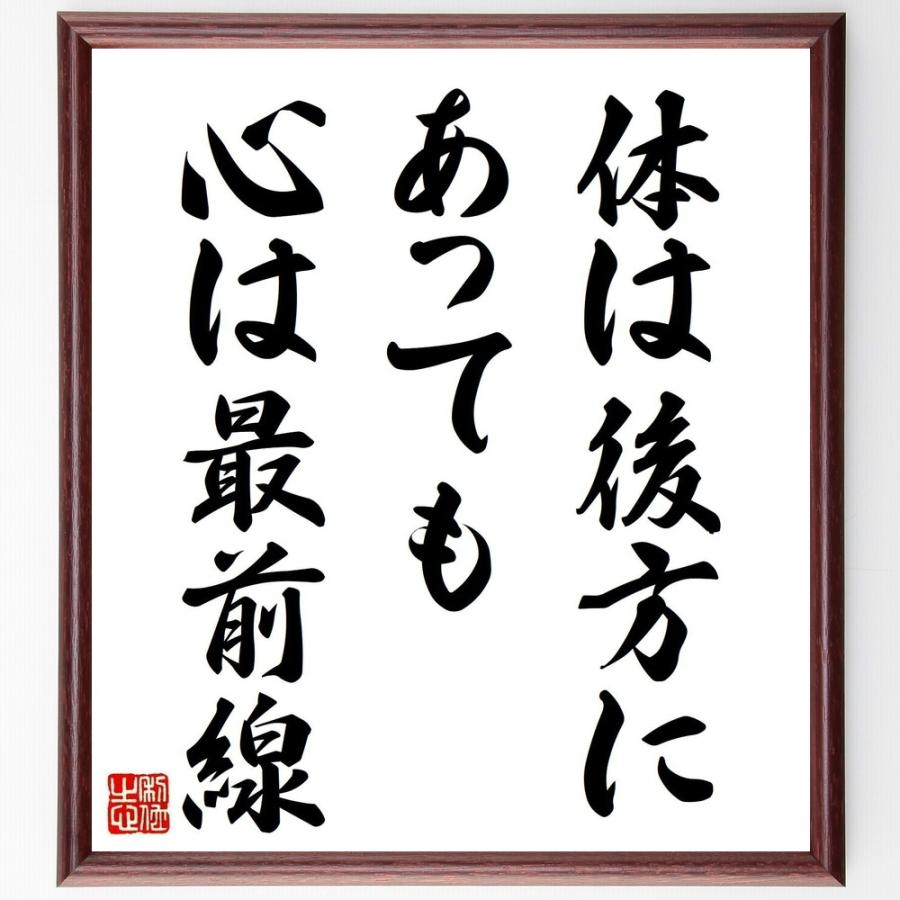 体は後方に
あっても
心は最前線